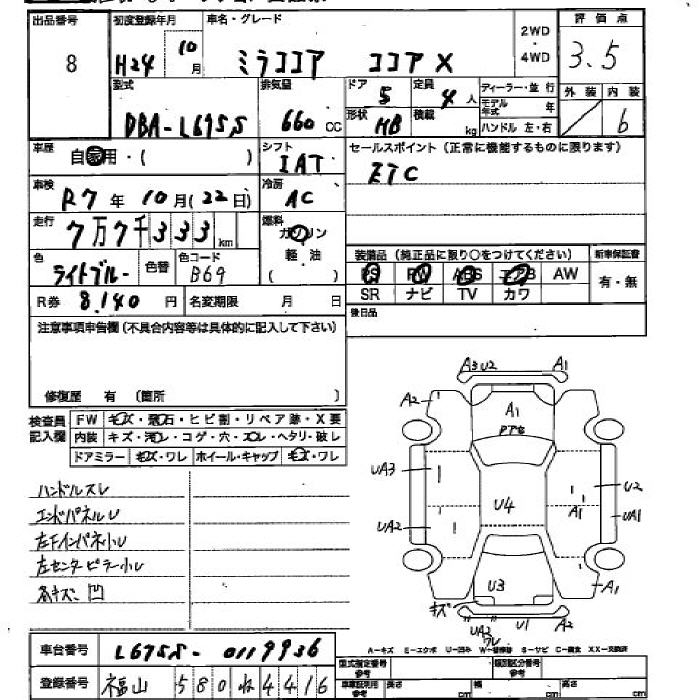 出品番号
8
初度登録年月
H24 10月
車名・グレード
ミラココア ココア X
2WD
・
4WD
評価点
3.5
外装 内装
6
型式
DBA-L675S
排気量
660 CC
ドア
5
定員
4人
形状
HB
積載
kg
ディーラー・並行
モデル年式 年
ハンドル 左・右
車歴
自家用・( )
シフト
IAT
セールスポイント(正常に機能するものに限ります)
ETC
車検
R7年10月(22日)
冷房
AC
走行
7万7千333km
燃料
ガソリン
軽油
( )
色
ライトブルー
色替
色コード
B69
装備品(純正品に限り○をつけてください)
PS PW ABS エアB AW
SR ナビ TV カワ
新車保証書
有・無
R券 8,140円
名変期限 月 日
後日品
注意事項申告欄(不具合内容等は具体的に記入して下さい)
修復歴 有 (箇所 )
検査員記入欄
FW キズ・飛石・ヒビ割・リペア跡・X要
内装 キズ・汚レ・コゲ・穴・スレ・ヘタリ・破レ
ドアミラー キズ・ワレ ホイール・キャップ キズ・ワレ
ハンドルスレ
エンドパネルU
左Fインパネ小U
左センターピラー小U
各キズ、凹
A3 U2 A1
A2
A1
UA3
U4
U2
UA2
A1
UA1
U3
キズ
A1
UA2
ワレ
U1
A2
A-キズ E-エクボ U-凹み W-補修跡 S-サビ C-腐食 XX-交換済
車台番号 L675S-0119936
登録番号 福山 580 ね 4416
型式指定番号
参考
類別区分番号
参考
車証証明用
参考
長さ cm
幅 cm
高さ cm